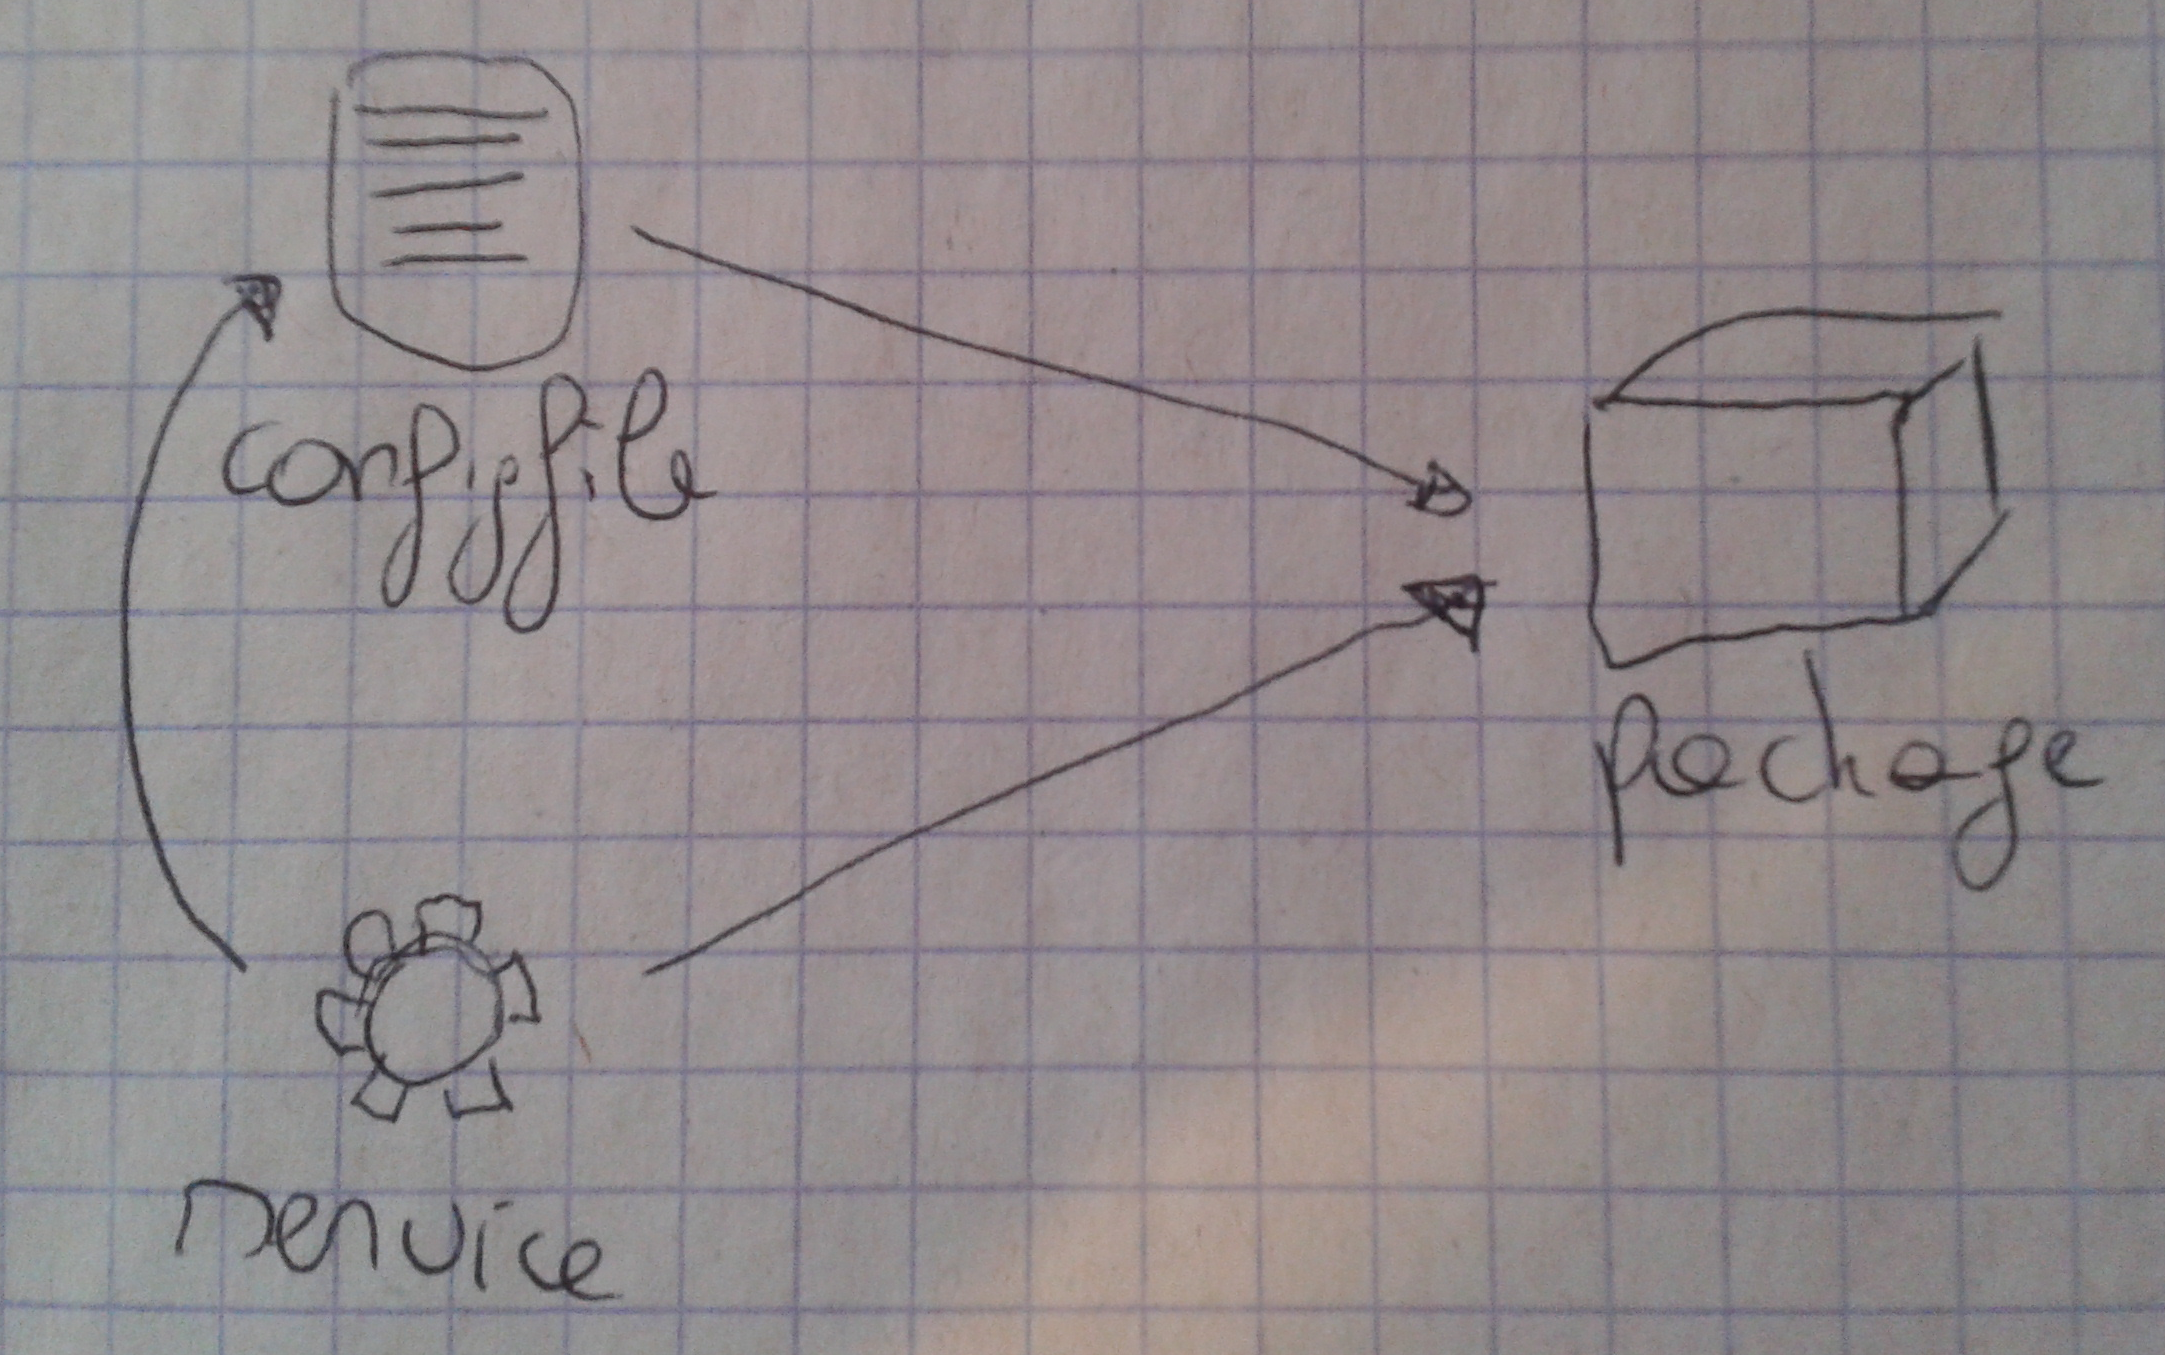 configfile
package
service